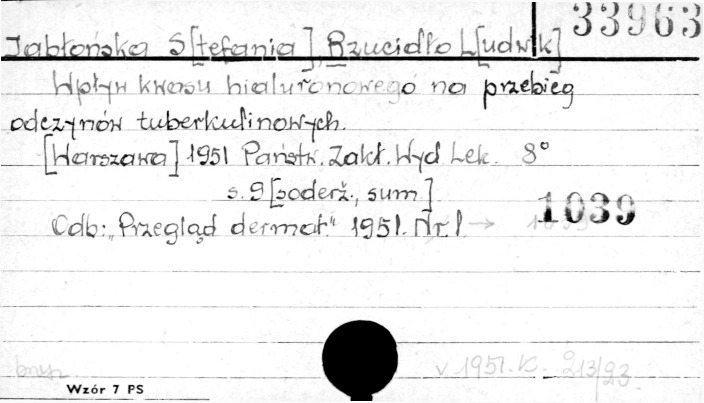 33963
Jabłońska S[tefania], Rzucidło L[udwik]
Wpływ kwasu hialuronowego na przebieg
odczynów tuberkulinowych.
[Warszawa] 1951 Państw. Zakł. Wyd Lek. 8°
s. 9 [soderž., sum.]
Odb: „Przegląd dermat." 1951. Nr. 1. → 1039
v 1951. K. 213/93
Wzór 7 PS